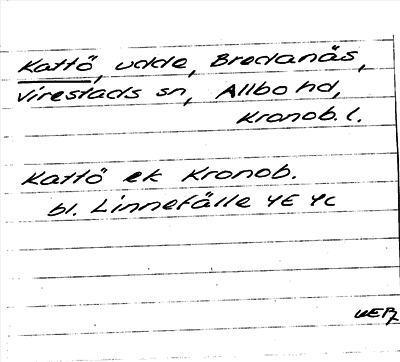 Kattö, udde, Bredanäs,
Virestads sn, Allbo hd,
Kronob. l.
Kattö ek Kronob.
bl. Linnefälle 4E 4c